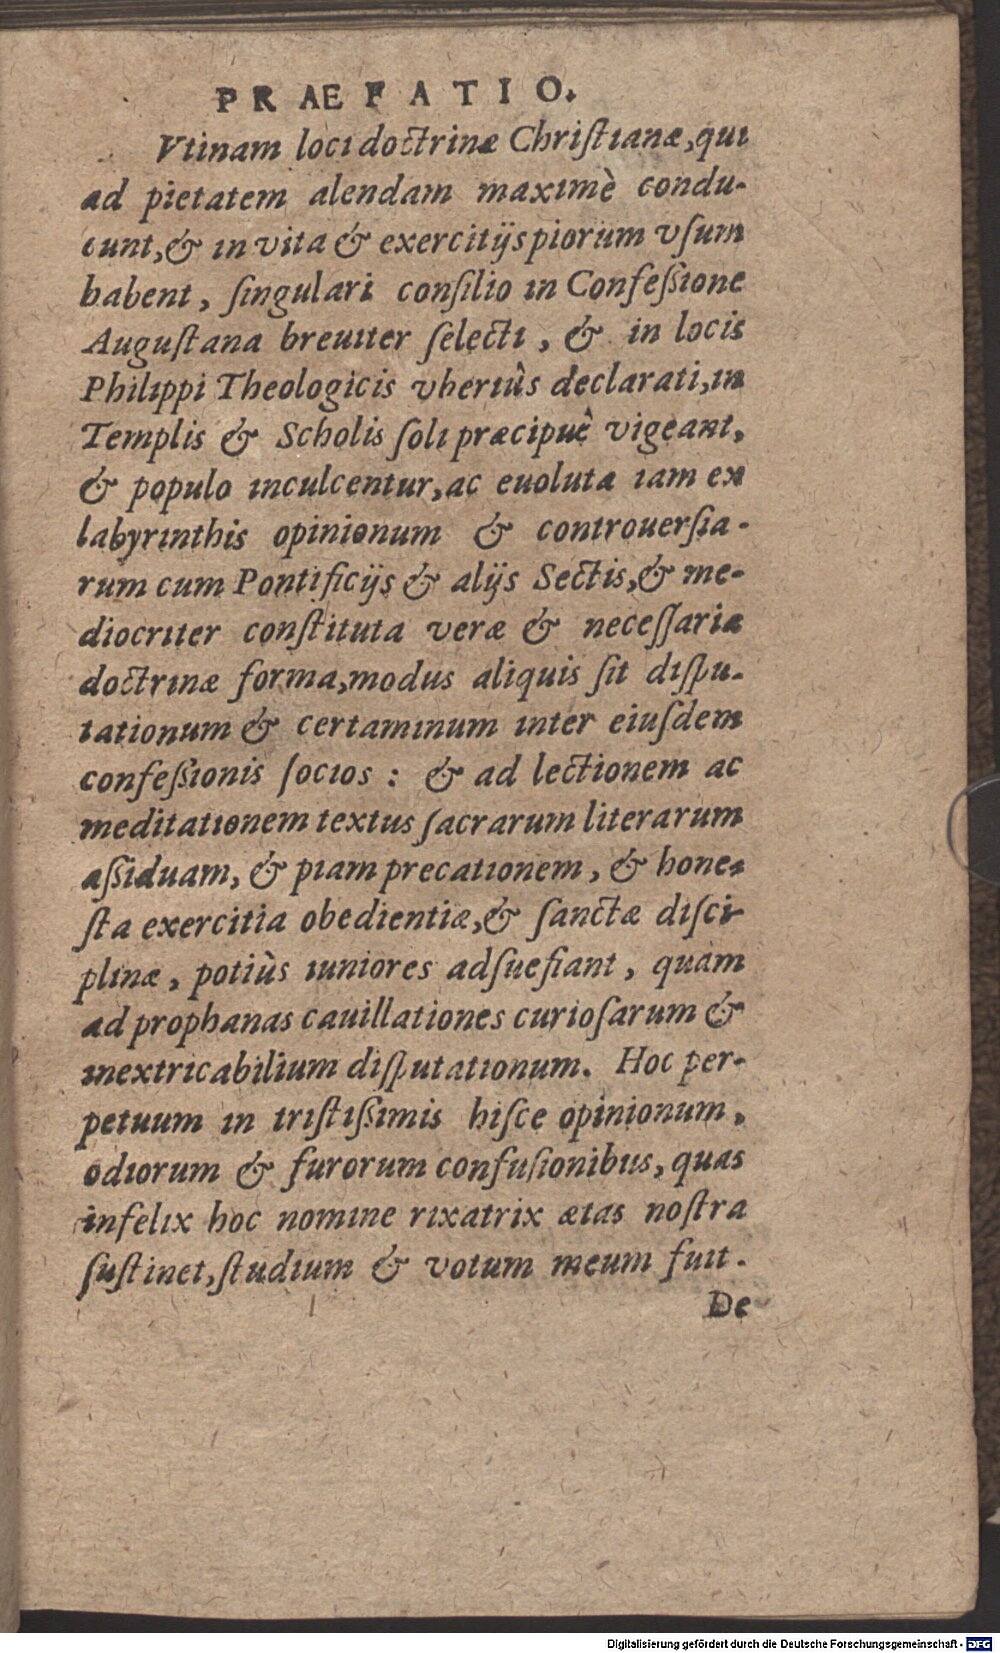 PRAEFATIO.
Vtinam loci doctrinæ Chriſtianæ, qui
ad pietatem alendam maximè condu-
cunt, & in vita & exercitijs piorum vſum
habent, ſingulari conſilio in Confeſsione
Auguſtana breuiter ſelecti, & in locis
Philippi Theologicis vberiùs declarati, in
Templis & Scholis ſoli præcipuê vigeant,
& populo inculcentur, ac euoluta iam ex
labyrinthis opinionum & controuerſia-
rum cum Pontificijs & alijs Sectis, & me-
diocriter conſtituta veræ & neceſſariæ
doctrinæ forma, modus aliquis ſit diſpu-
tationum & certaminum inter eiuſdem
confeſsionis ſocios: & ad lectionem ac
meditationem textus ſacrarum literarum
aſsiduam, & piam precationem, & hone-
ſta exercitia obedientiæ, & ſanctæ diſci-
plinæ, potiùs iuniores adſuefiant, quàm
ad prophanas cauillationes curioſarum &
inextricabilium diſputationum. Hoc per-
petuum in triſtiſsimis hiſce opinionum,
odiorum & furorum confuſionibus, quas
infelix hoc nomine rixatrix ætas noſtra
ſuſtinet, ſtudium & votum meum fuit.
De
Digitalisierung gefördert durch die Deutsche Forschungsgemeinschaft - DFG